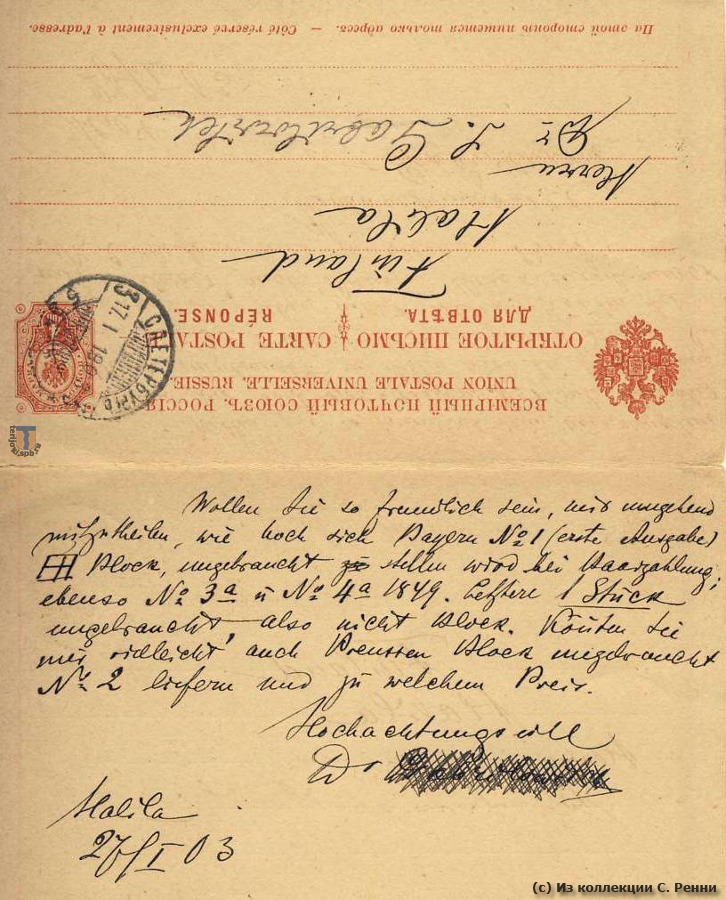 ВСЕМІРНЫЙ ПОЧТОВЫЙ СОЮЗЪ. РОССІЯ.
UNION POSTALE UNIVERSELLE. RUSSIE.
ОТКРЫТОЕ ПИСЬМО CARTE POSTALE
ДЛЯ ОТВѢТА. RÉPONSE.
С.ПЕТЕРБУРГЪ
Finland
Halila
Herrn
Dr. S. Gabrilowitch
На этой сторонѣ пишется только адресъ. — Côté réservé exclusivement à l'adresse.
Wollen Sie so freundlich sein, mir umgehend
mitzutheilen, wie hoch sich Bayern No 1 (erste Ausgabe)
Block, ungebraucht stellen wird bei Baarzahlung;
ebenso No 3a u No 4a 1849. Letztere 1 Stück
ungebraucht, also nicht Block. Könten Sie
mir vielleicht auch Preussen Block ungebraucht
No 2 liefern und zu welchem Preis.
Hochachtungsvoll
Dr
Halila
27/I 03
terijoki.spb.ru
(c) Из коллекции С. Ренни